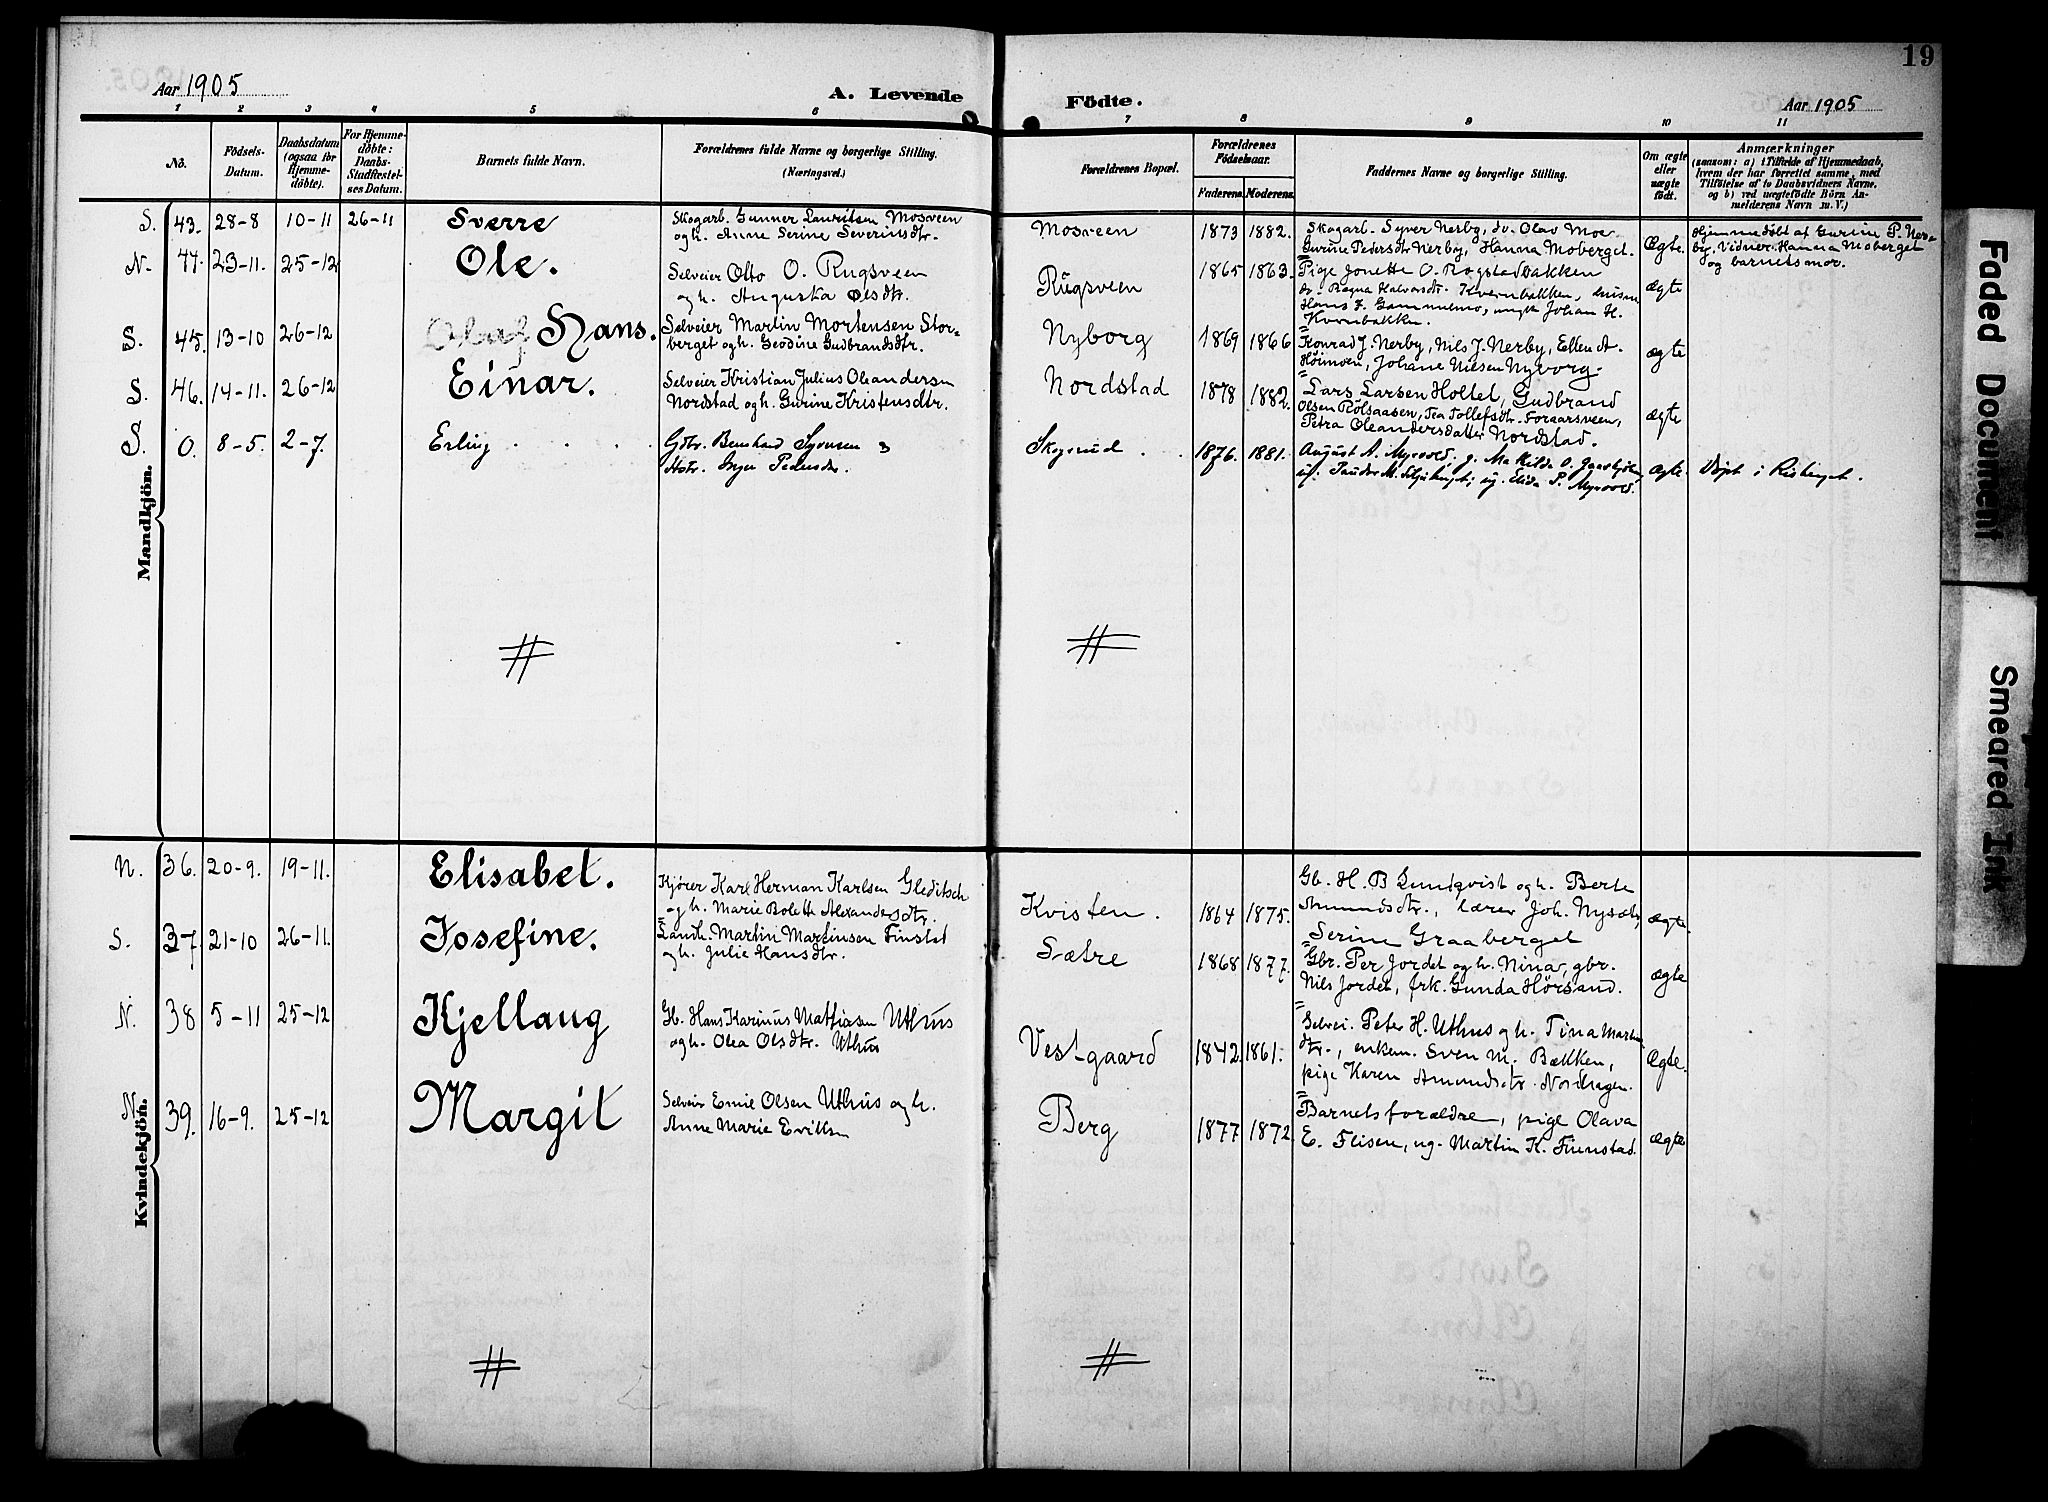 19
Aar 1905
A. Levende
Födte.
Aar 1905
1 2 3 4 5 6 7 8 9 10 11
No.
Födsels-Datum.
Daabsdatum (ogsaa for Hjemme-døbte).
For Hjemme-døbte: Daabs-Stadfæstel-ses Datum.
Barnets fulde Navn.
Forældrenes fulde Navne og borgerlige Stilling.
(Næringsvei.)
Forældrenes Bopæl.
Forældrenes Födselsaar.
Faderens. Moderens.
Faddernes Navne og borgerlige Stilling.
Om ægte eller uægte født.
Anmærkninger
(saasom: a) i Tilfælde af Hjemmedaab, hvem der har forrettet samme, med Tilføielse af to Daabsvidners Navne, og b) ved uægtefödte Börn An-melderens Navn m. V.)
Mandkjön.
S. 43. 28-8 10-11 26-11 Sverre
Skogarb. Gunner Lauritsen Mosveen
og h. Anne Serine Severinsdtr.
Mosveen 1873 1882.
Skogarb. Syver Nerby, do. Olav Moe
Gurine Pedersdtr Nerby, Hanna Moberget.
Ægte.
Hjemmedøbt af Gurine P. Ner-
by, Vidner: Hanna Moberget
og barnets mor.
N. 44. 23-11. 25-12 Ole.
Selveier Otto O. Rugsveen
og h. Augusta Olsdtr.
Rugsveen 1865 1863.
Pige Jonette O. Rogstadbakken
do. Ragna Halvorsdtr. Kvernbakken,
Hans J. Gammelmo, ungk. Johan H.
Kvernbakken.
ægte
S. 45. 13-10 26-12 Olaf Hans.
Selveier Martin Mortensen Stor-
berget og h. Geodine Gudbrandsdtr.
Nyborg 1869 1866
Konrad J. Nerby, Nils J. Nerby, Ellen A.
Høimoen, Johane Nilsen Nyborg.
ægte
S. 46. 14-11. 26-12 Einar.
Selveier Kristian Julius Oleandersen
Nordstad og h. Gurine Kristensdtr.
Nordstad 1878 1882.
Lars Larsen Holtet, Gudbrand
Olsen Rolsaasen, Tea Tollefsdtr. Foraarsveen,
Petra Oleandersdatter Nordstad.
ægte
S. 0. 8-5. 2-7. Erling
Gbr. Bernhard Syversen &
Hstr. Inger Pedersdtr.
Skogrud 1876. 1881.
August A. Myrvold, g. Matilda O.
Elida P. Myrvold.
ægte. Døpt i Risberget.
Kvindekjön.
N. 36. 20-9. 19-11. Elisabet.
Kjører Karl Herman Karlsen Gleditsch
og h. Marie Bolette Alexandersdtr.
Kvisten. 1864 1875.
Gb. H. B. Lundqvist og h. Berte
Amundsdtr., lærer Joh. Nysæter,
Serine Graaberget
ægte.
S. 37. 21-10 26-11. Josefine.
Landh. Martin Martinsen Finstad
og h. Julie Hansdtr.
Sætre 1868 1877.
Gbr. Per Jordet og h. Nina, gbr.
Nils Jordet, frk. Gunda Hörsand.
ægte
N. 38 5-11 25-12 Kjellaug
Gb. Hans Karinus Mathiasen Uthus
og h. Olea Olsdtr. Uthus
Vestgaard 1842. 1861.
Selvei. Peter H. Uthus og h. Tina Martins
dtr., enkem. Sven M. Bækken,
pige Karen Amundsdtr. Nordhagen.
Ægte.
N. 39. 16-9. 25-12 Margit
Selveier Emil Olsen Uthus og h.
Anne Marie Eriksen
Berg 1877 1872
Barnets forældre, pige Olava
E. Flisen, ug. Martin K. Finnstad.
ægte
Faded Document
Smeared Ink